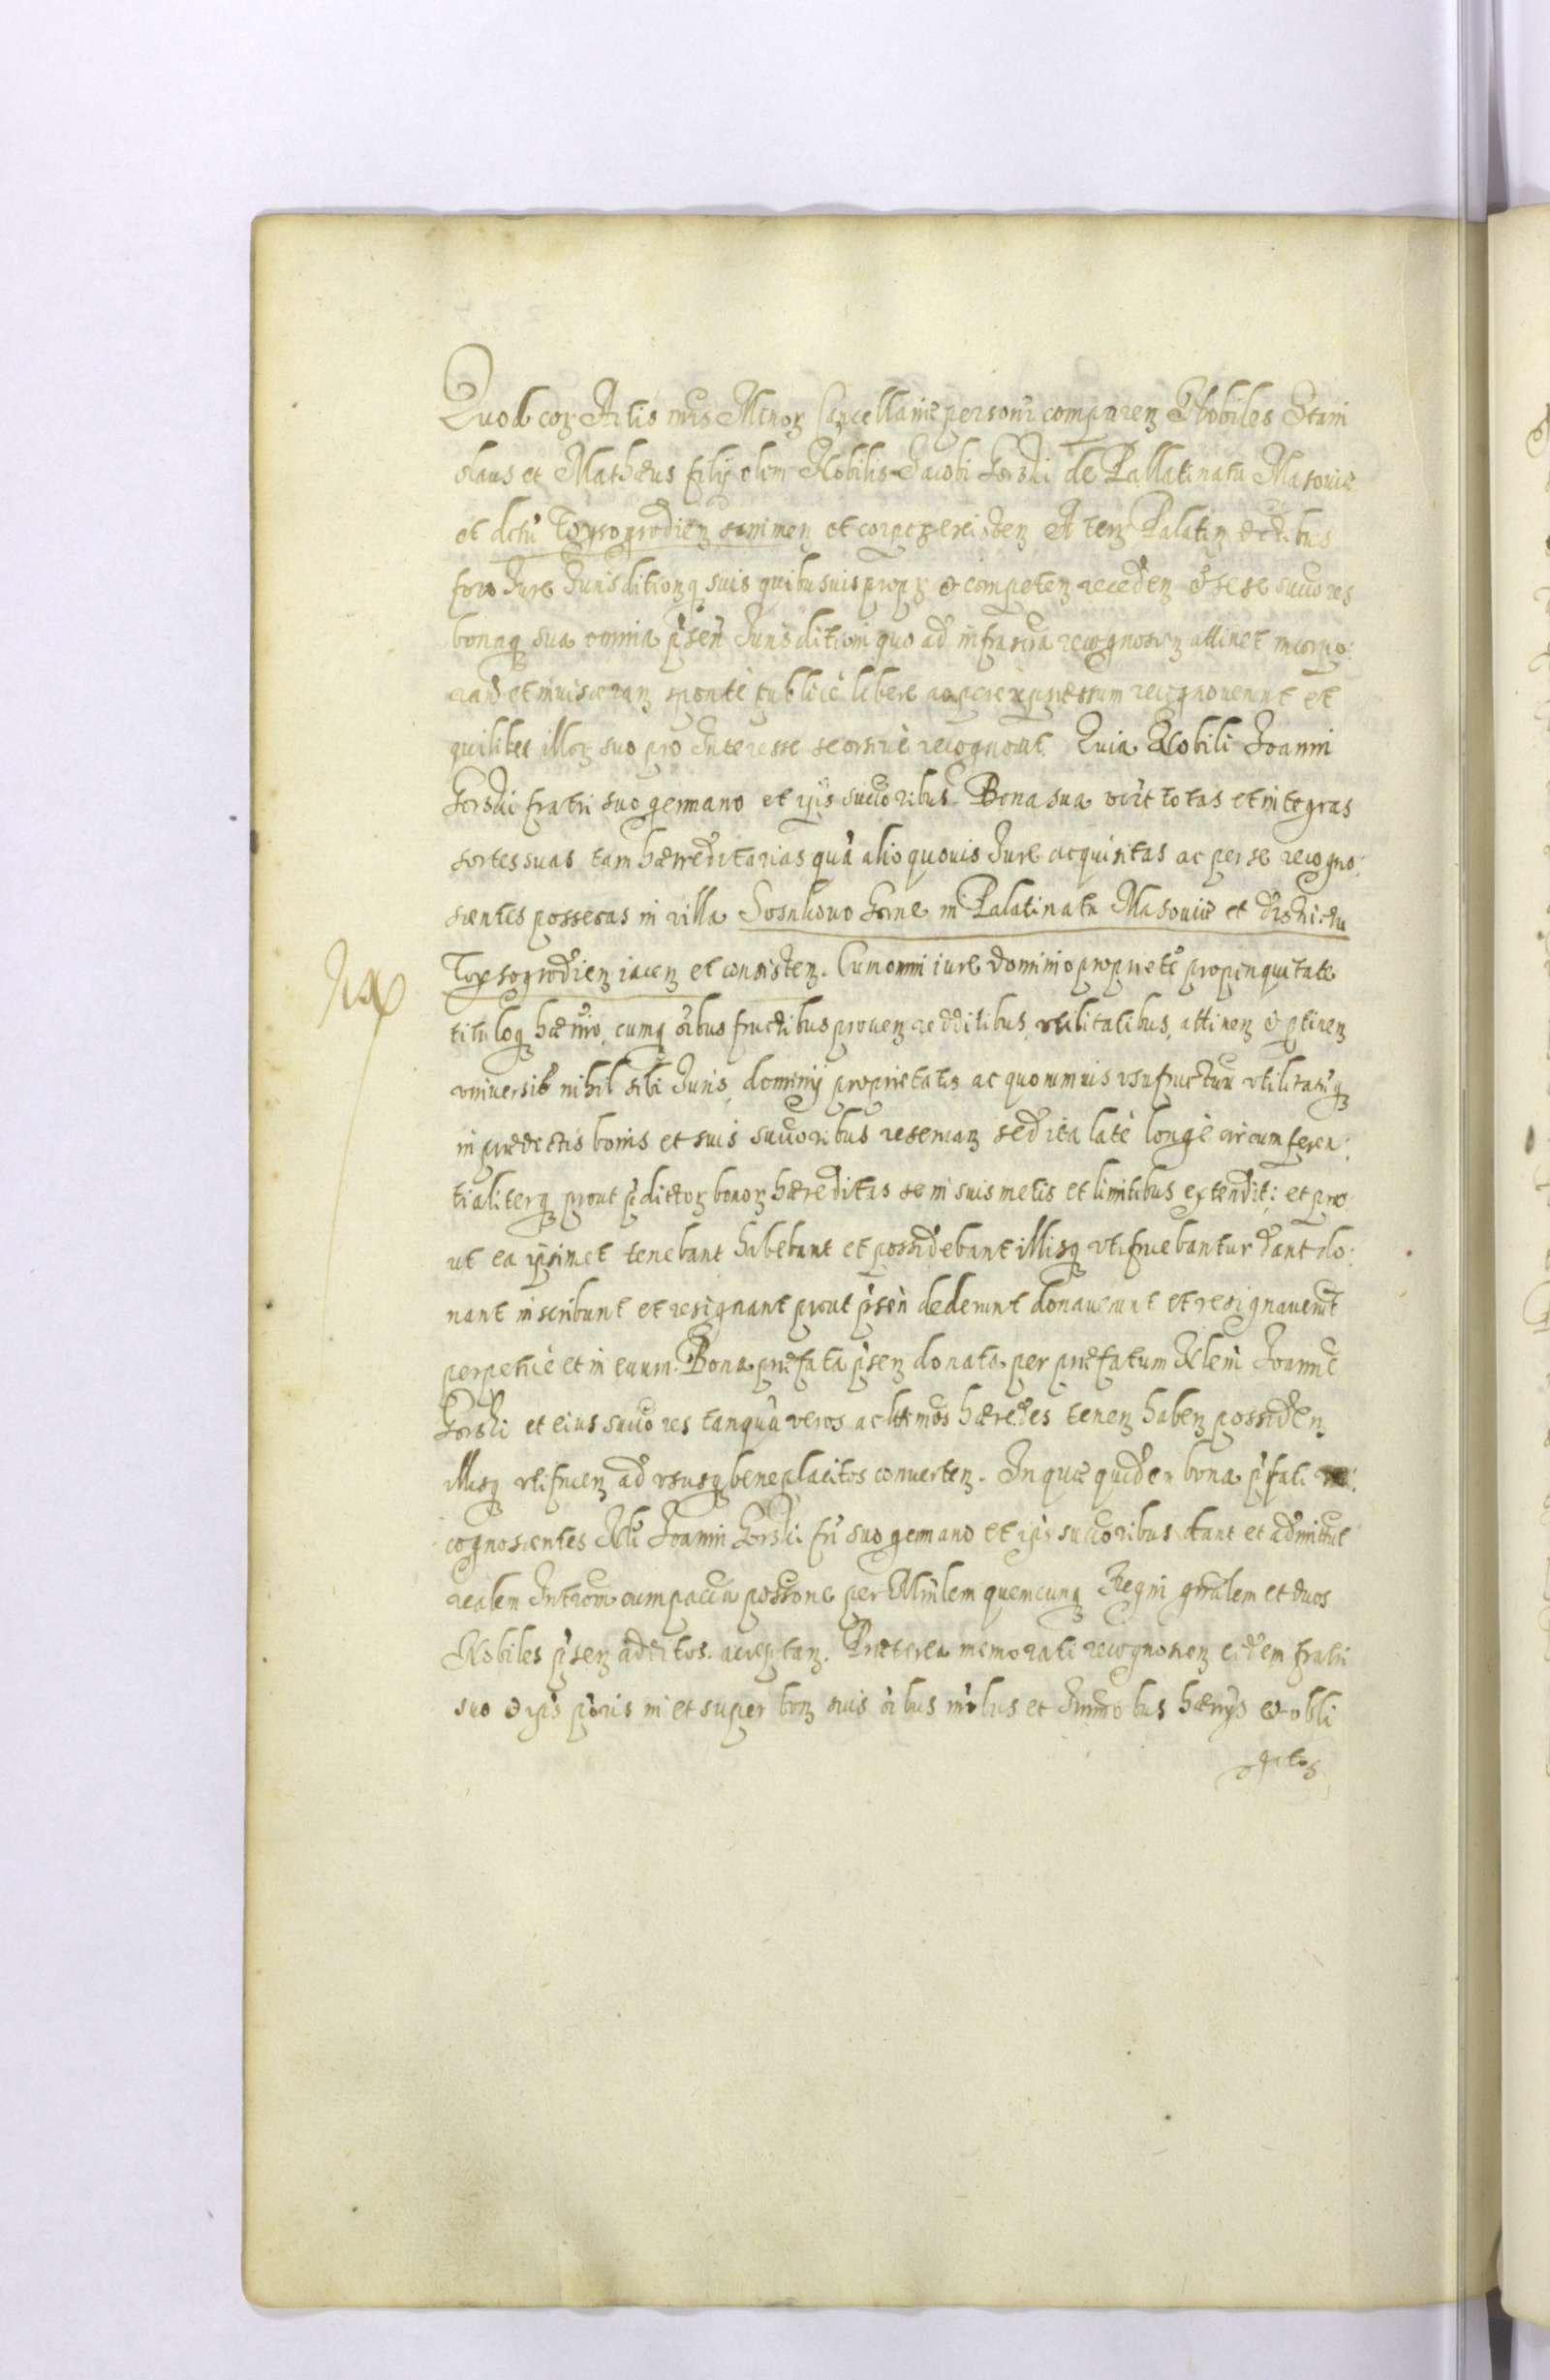 Quod cor Actis nris Minor Cancellariæ personr comparen Nobiles Stani
slaus et Mathæus filij olim Nobilis Jacobi Gorski de Pallatinatu Masouiæ
et dctu sani men et corpe existen A terr Palatin
foro Jure Jurisditionq suis quibusuis propr & competen receden & se se succores
bonaq sua omnia psen Jurisditioni quo ad infrascra recognoscen attinet incorpo:
ran et inuisceran sponte publice libere ac per expressum recognouerunt et
quilibet illor suo pro Interesse seorsiuè recognouit. Quia Nobili Joanni
Gorski fratri suo germano et ijis succoribus Bona sua vult totas et integras
sortes suas tam hæreditarias quā alio quouis Jure acquisitas ac per se recogno:
scentes possessas in villa Sosnkouo Gorne in Palatinatu Masouiæ et districtu
iacen et consisten. Cum omni iure dominio propriete propinquitate
tituloq hærrio, cumq oibus fructibus prouen redditibus, vtilitatibus, attinen & ptinen
vniuersis nihil sibi Juris, dominij proprietatis ac quorumuis vsufructuu vtilitatuq
in prædictis bonis et suis succoribus reseruan sed ita latè longè circumferen:
tialiterq prout pdictor bonor hæreditas se in suis metis et limitibus extendit: et pro
ut ea ipsimet tenebant habebant et possidebant illisq vtifruebantur dant do:
nant inscribunt et resignant prout psen dederunt donauerunt et resignauerut
perpetuè et in euum. Bona præfata psen donata per præfatum Nlem Joanne
Gorski et eius succores tanquā veros ac ltimos hæredes tenen haben possiden
illisq vtifruen ad vsusq beneplacitos conuerten. In quæ quidem bona pfati re:
cognoscentes Nli Joanni Gorski fri suo germano et ipi succoribus dant et admittut
realem Introm cum paccta possone per Minlem quemcunq Regni gnrulem et duos
Nobiles psen additos acceptan. Præterea memorati recognoscen eidem fratri
suo & ipis in et super bon suis oibus mobus et Immobus hærrijs & obli
gatos